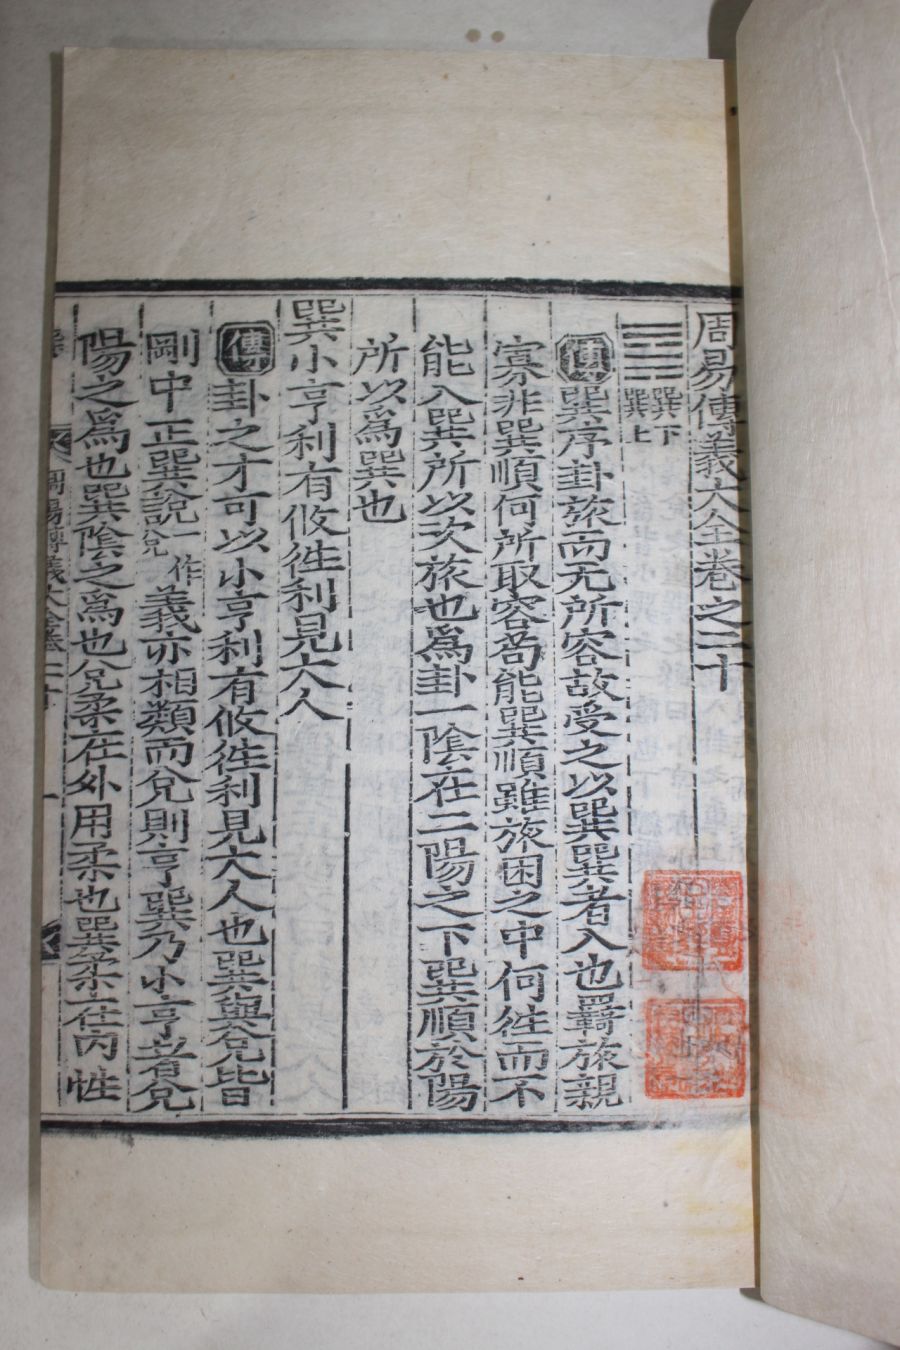 周易傳義大全卷之二十
巽下
巽上
傳巽序卦旅而无所容故受之以巽巽者入也羇旅親
寡非巽順何所取容苟能巽順雖旅困之中何徃而不
能入巽所以次旅也爲卦一陰在二陽之下巽順於陽
所以爲巽也
巽小亨利有攸徃利見大人
傳卦之才可以小亨利有攸徃利見大人也巽與兌皆
剛中正巽說一作兌義亦相類而兌則亨巽乃小亨者兌
陽之爲也巽陰之爲也兌柔在外用柔也巽柔在內性
周易傳義大全卷二十
一